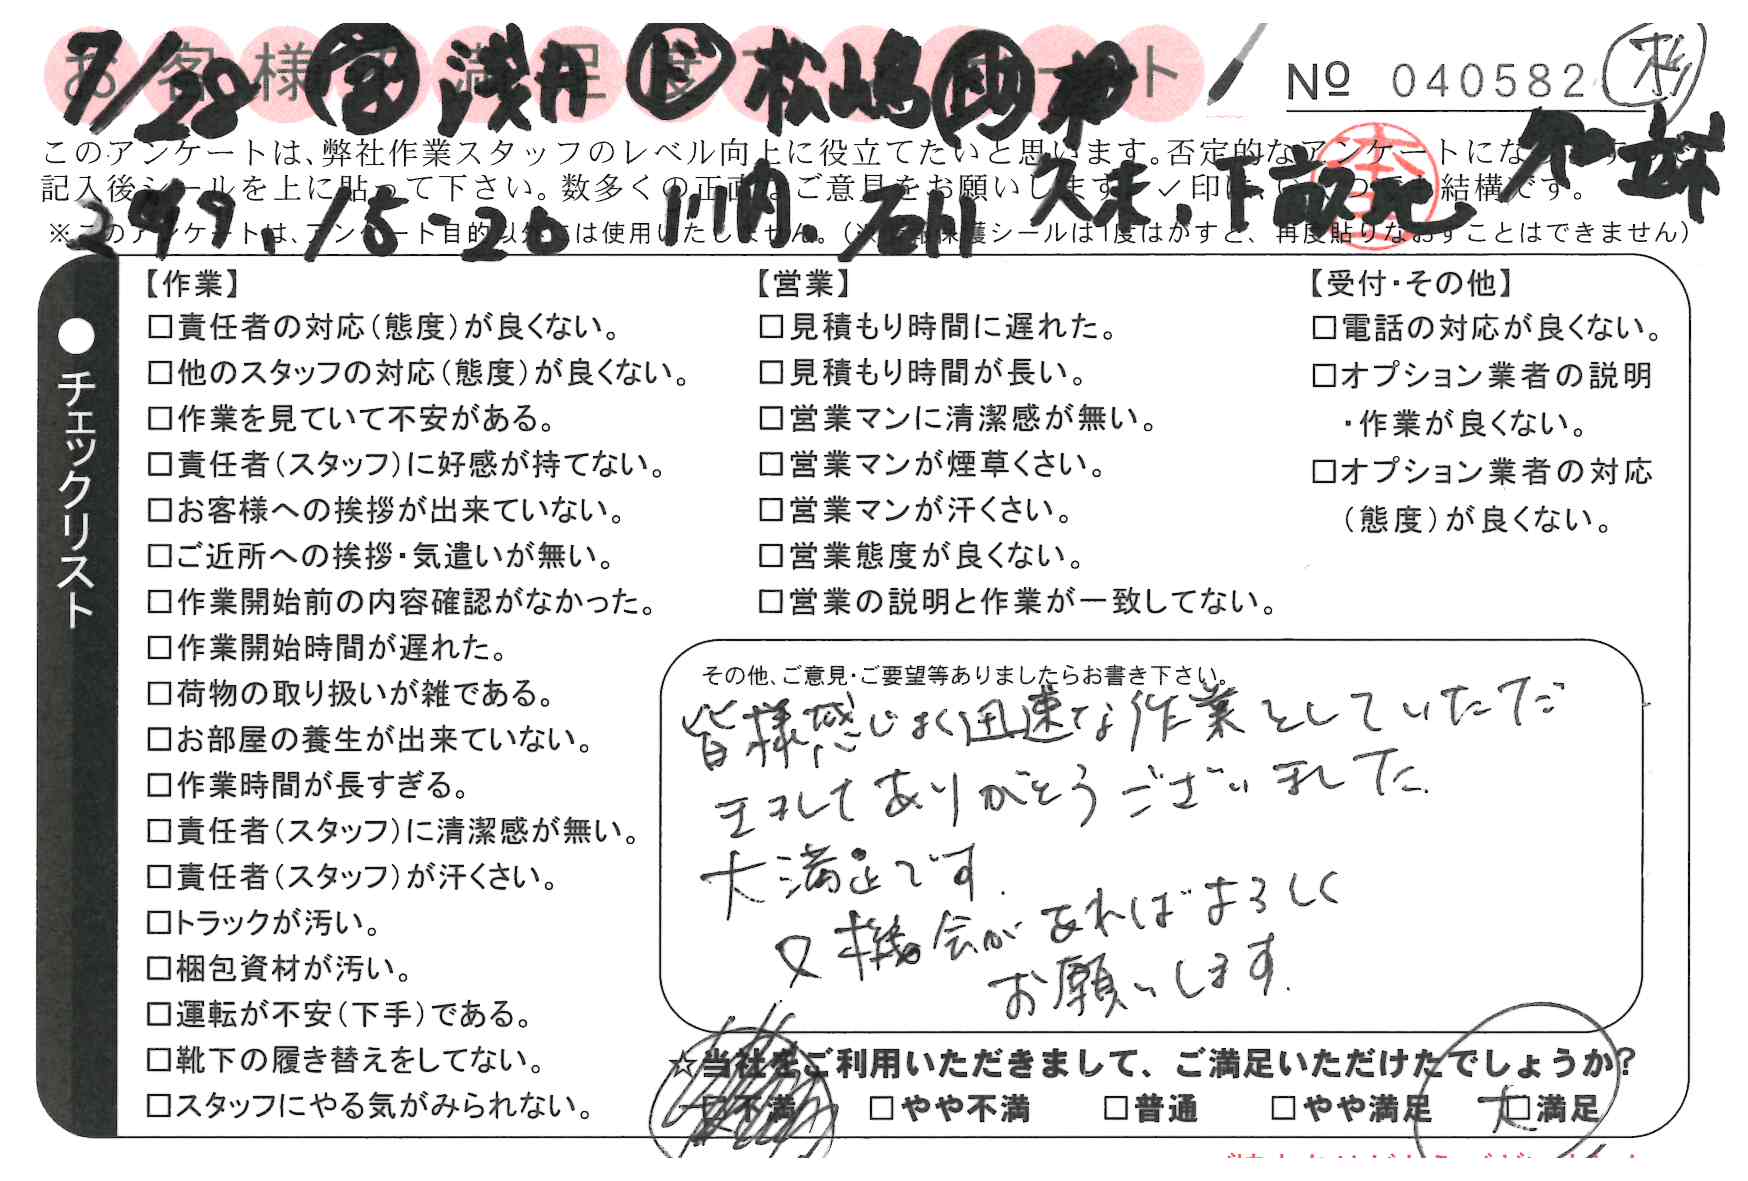 お客様満足度アンケート
7/28 営 浅井 ド 松嶋 助 林
№ 040582
このアンケートは、弊社作業スタッフのレベル向上に役立てたいと思います。否定的なアンケートにな
記入後シールを上に貼って下さい。数多くの正直なご意見をお願いします。✓印は、いくつでも結構です。
2499. 15-20 川内 石川 久末、下
※このアンケートは、アンケート目的以外には使用いたしません。(※保護シールは1度はがすと、再度貼りなおすことはできません)
●チェックリスト
【作業】
□責任者の対応(態度)が良くない。
□他のスタッフの対応(態度)が良くない。
□作業を見ていて不安がある。
□責任者(スタッフ)に好感が持てない。
□お客様への挨拶が出来ていない。
□ご近所への挨拶・気遣いが無い。
□作業開始前の内容確認がなかった。
□作業開始時間が遅れた。
□荷物の取り扱いが雑である。
□お部屋の養生が出来ていない。
□作業時間が長すぎる。
□責任者(スタッフ)に清潔感が無い。
□責任者(スタッフ)が汗くさい。
□トラックが汚い。
□梱包資材が汚い。
□運転が不安(下手)である。
□靴下の履き替えをしてない。
□スタッフにやる気がみられない。
【営業】
□見積もり時間に遅れた。
□見積もり時間が長い。
□営業マンに清潔感が無い。
□営業マンが煙草くさい。
□営業マンが汗くさい。
□営業態度が良くない。
□営業の説明と作業が一致してない。
【受付・その他】
□電話の対応が良くない。
□オプション業者の説明
・作業が良くない。
□オプション業者の対応
(態度)が良くない。
その他、ご意見・ご要望等ありましたらお書き下さい。
皆様感じよく迅速な作業をしていただ
きましてありがとうございました.
大満足です.
又機会があればよろしく
お願いします.
☆当社をご利用いただきまして、ご満足いただけたでしょうか?
□不満 □やや不満 □普通 □やや満足 大□満足